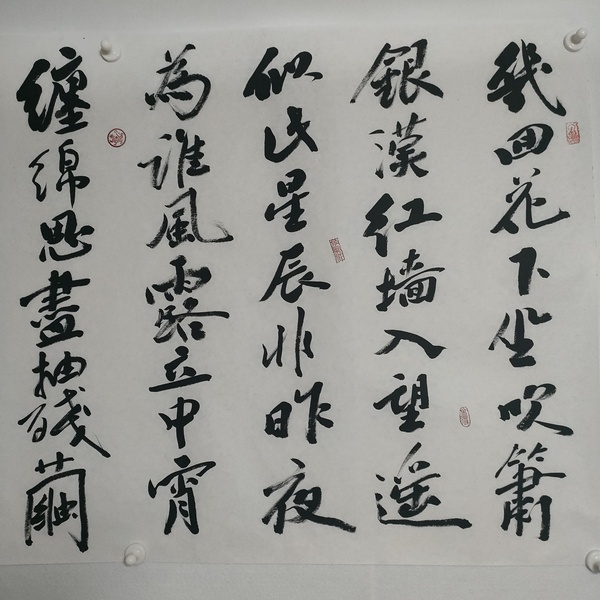 幾回花下坐吹簫
銀漢紅墙入望遥
似此星辰非昨夜
為誰風露立中宵
纏綿思盡抽殘繭